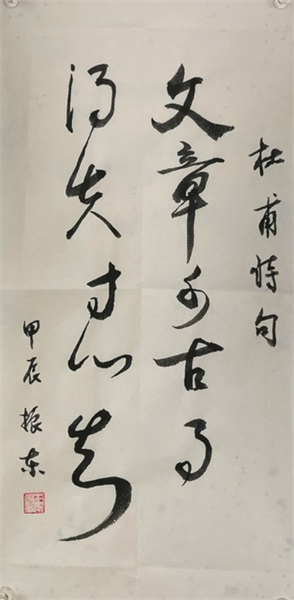 杜甫诗句
文章千古事
得失寸心知
甲辰振东